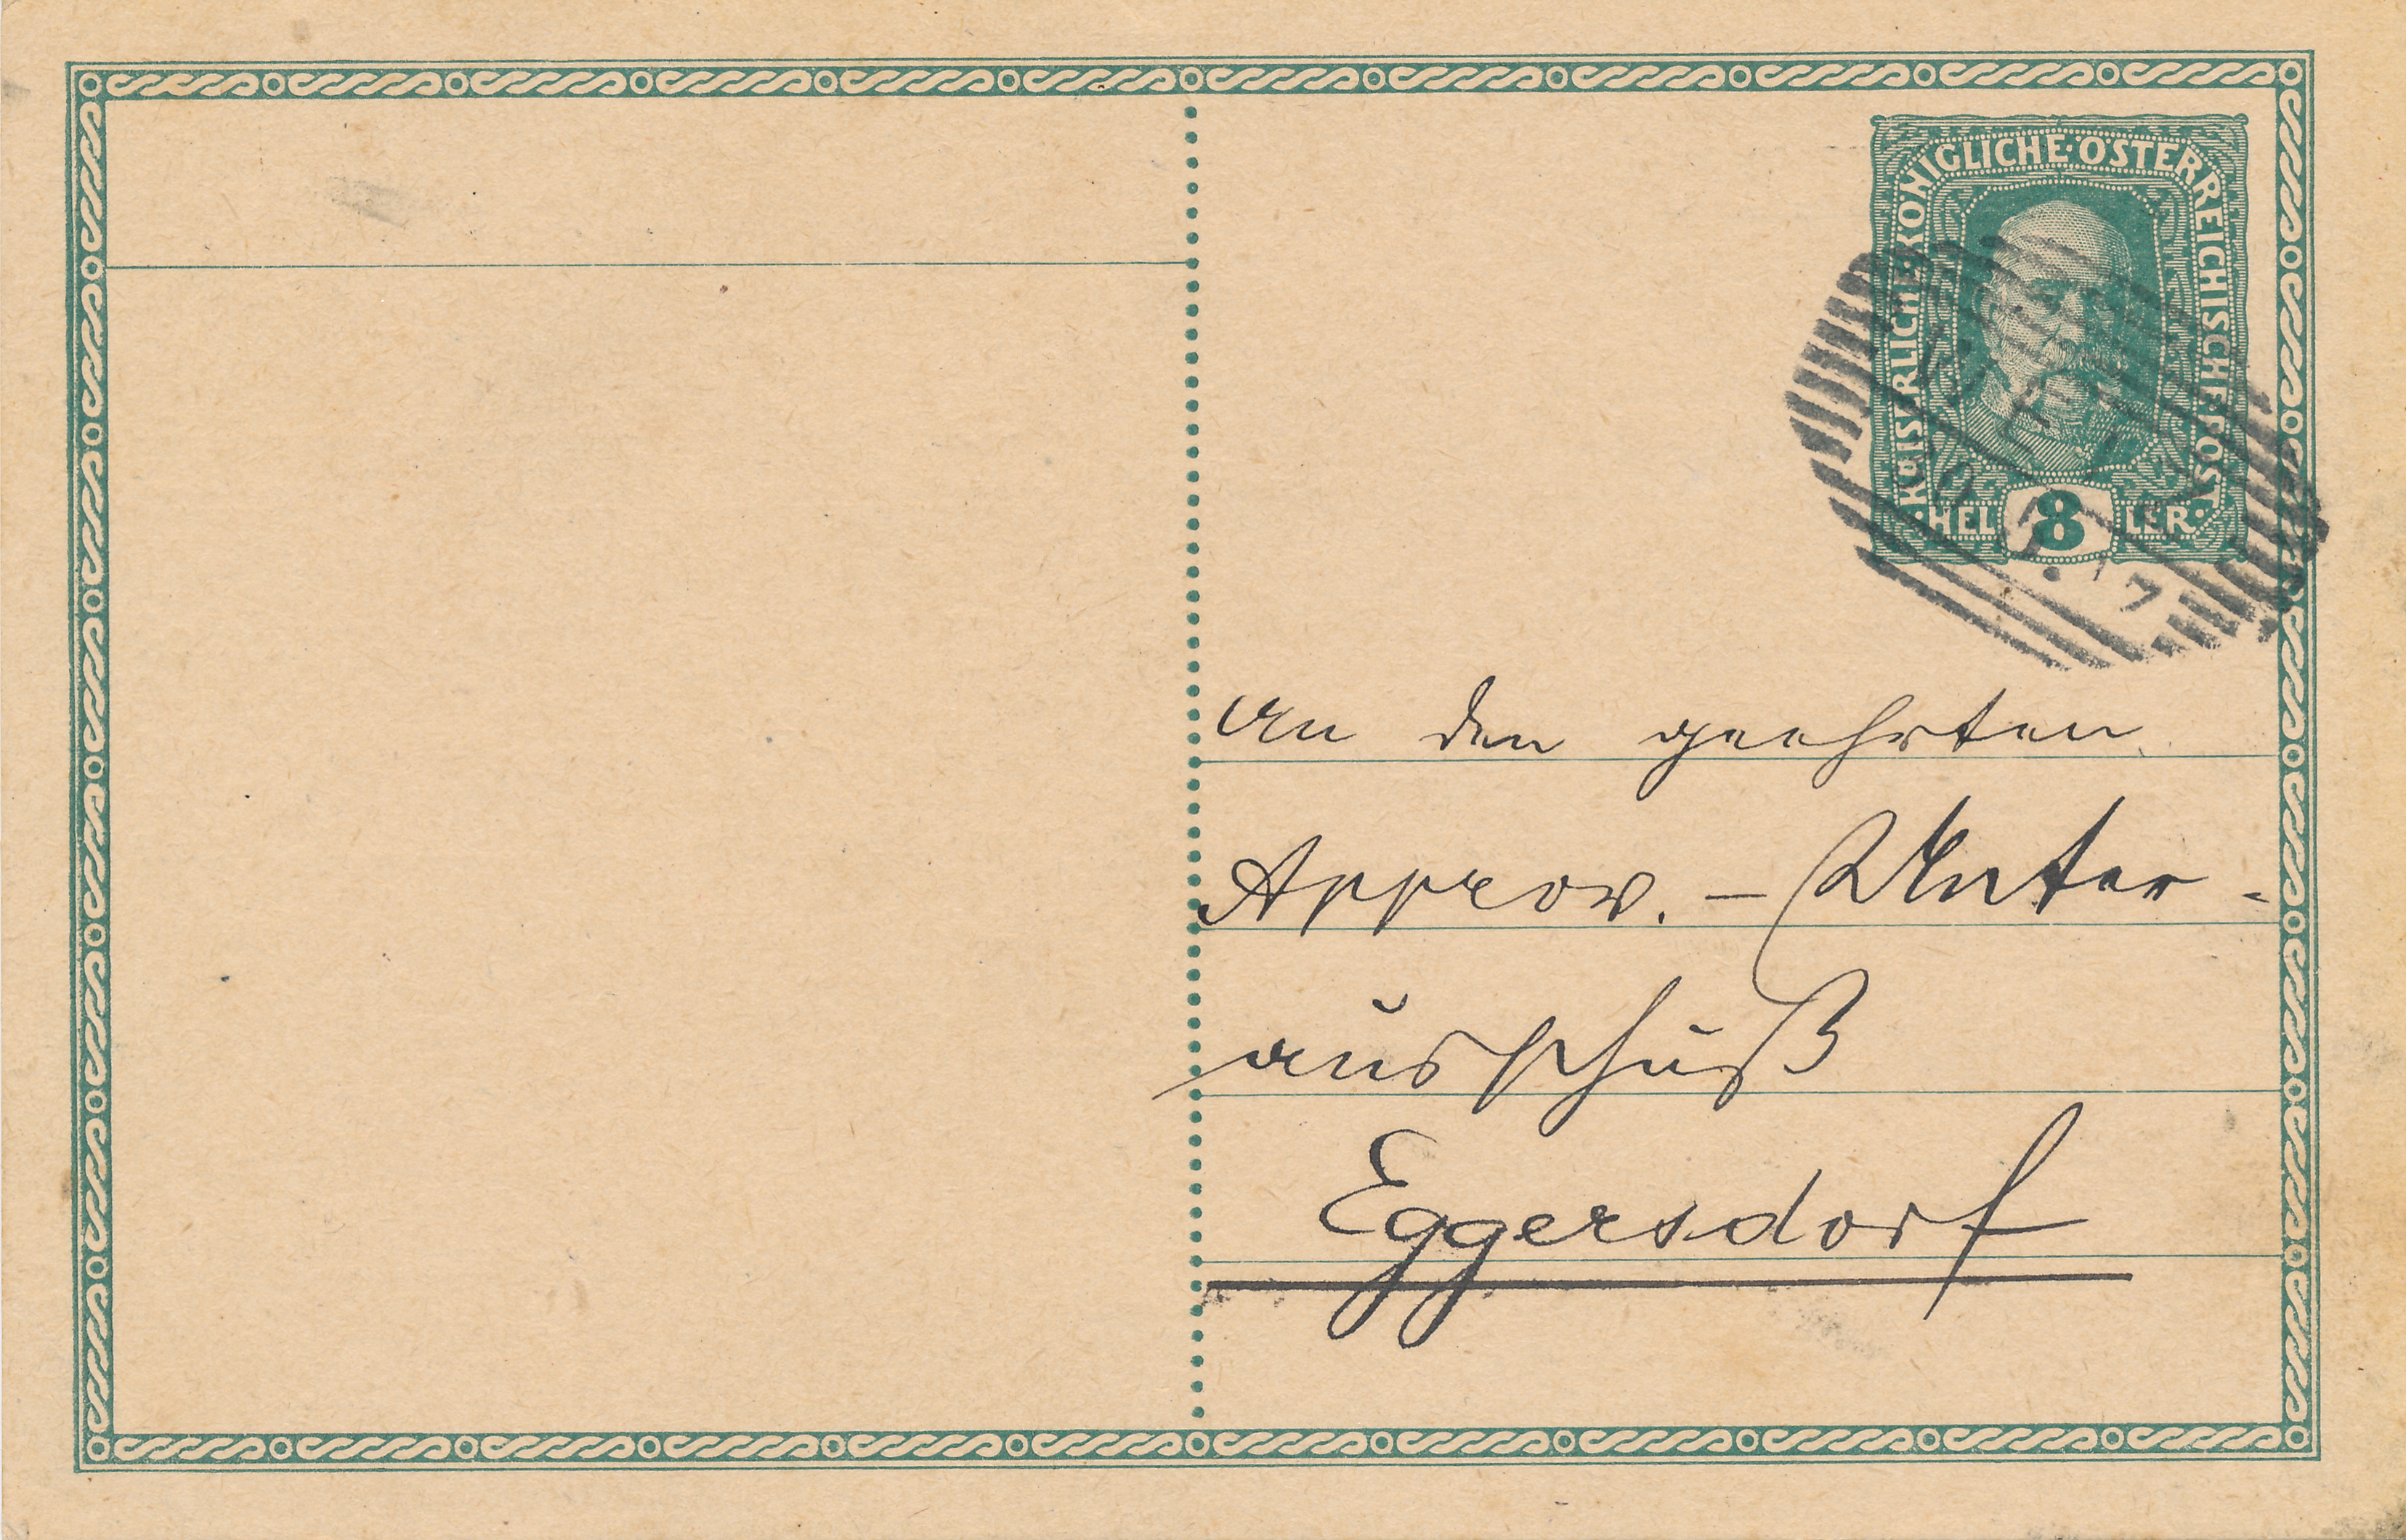 KAISERLICHE·KÖNIGLICHE·ÖSTERREICHISCHE POST
HEL 8 LER
An den geehrten
Approv. - Unter-
ausschuß
Eggersdorf